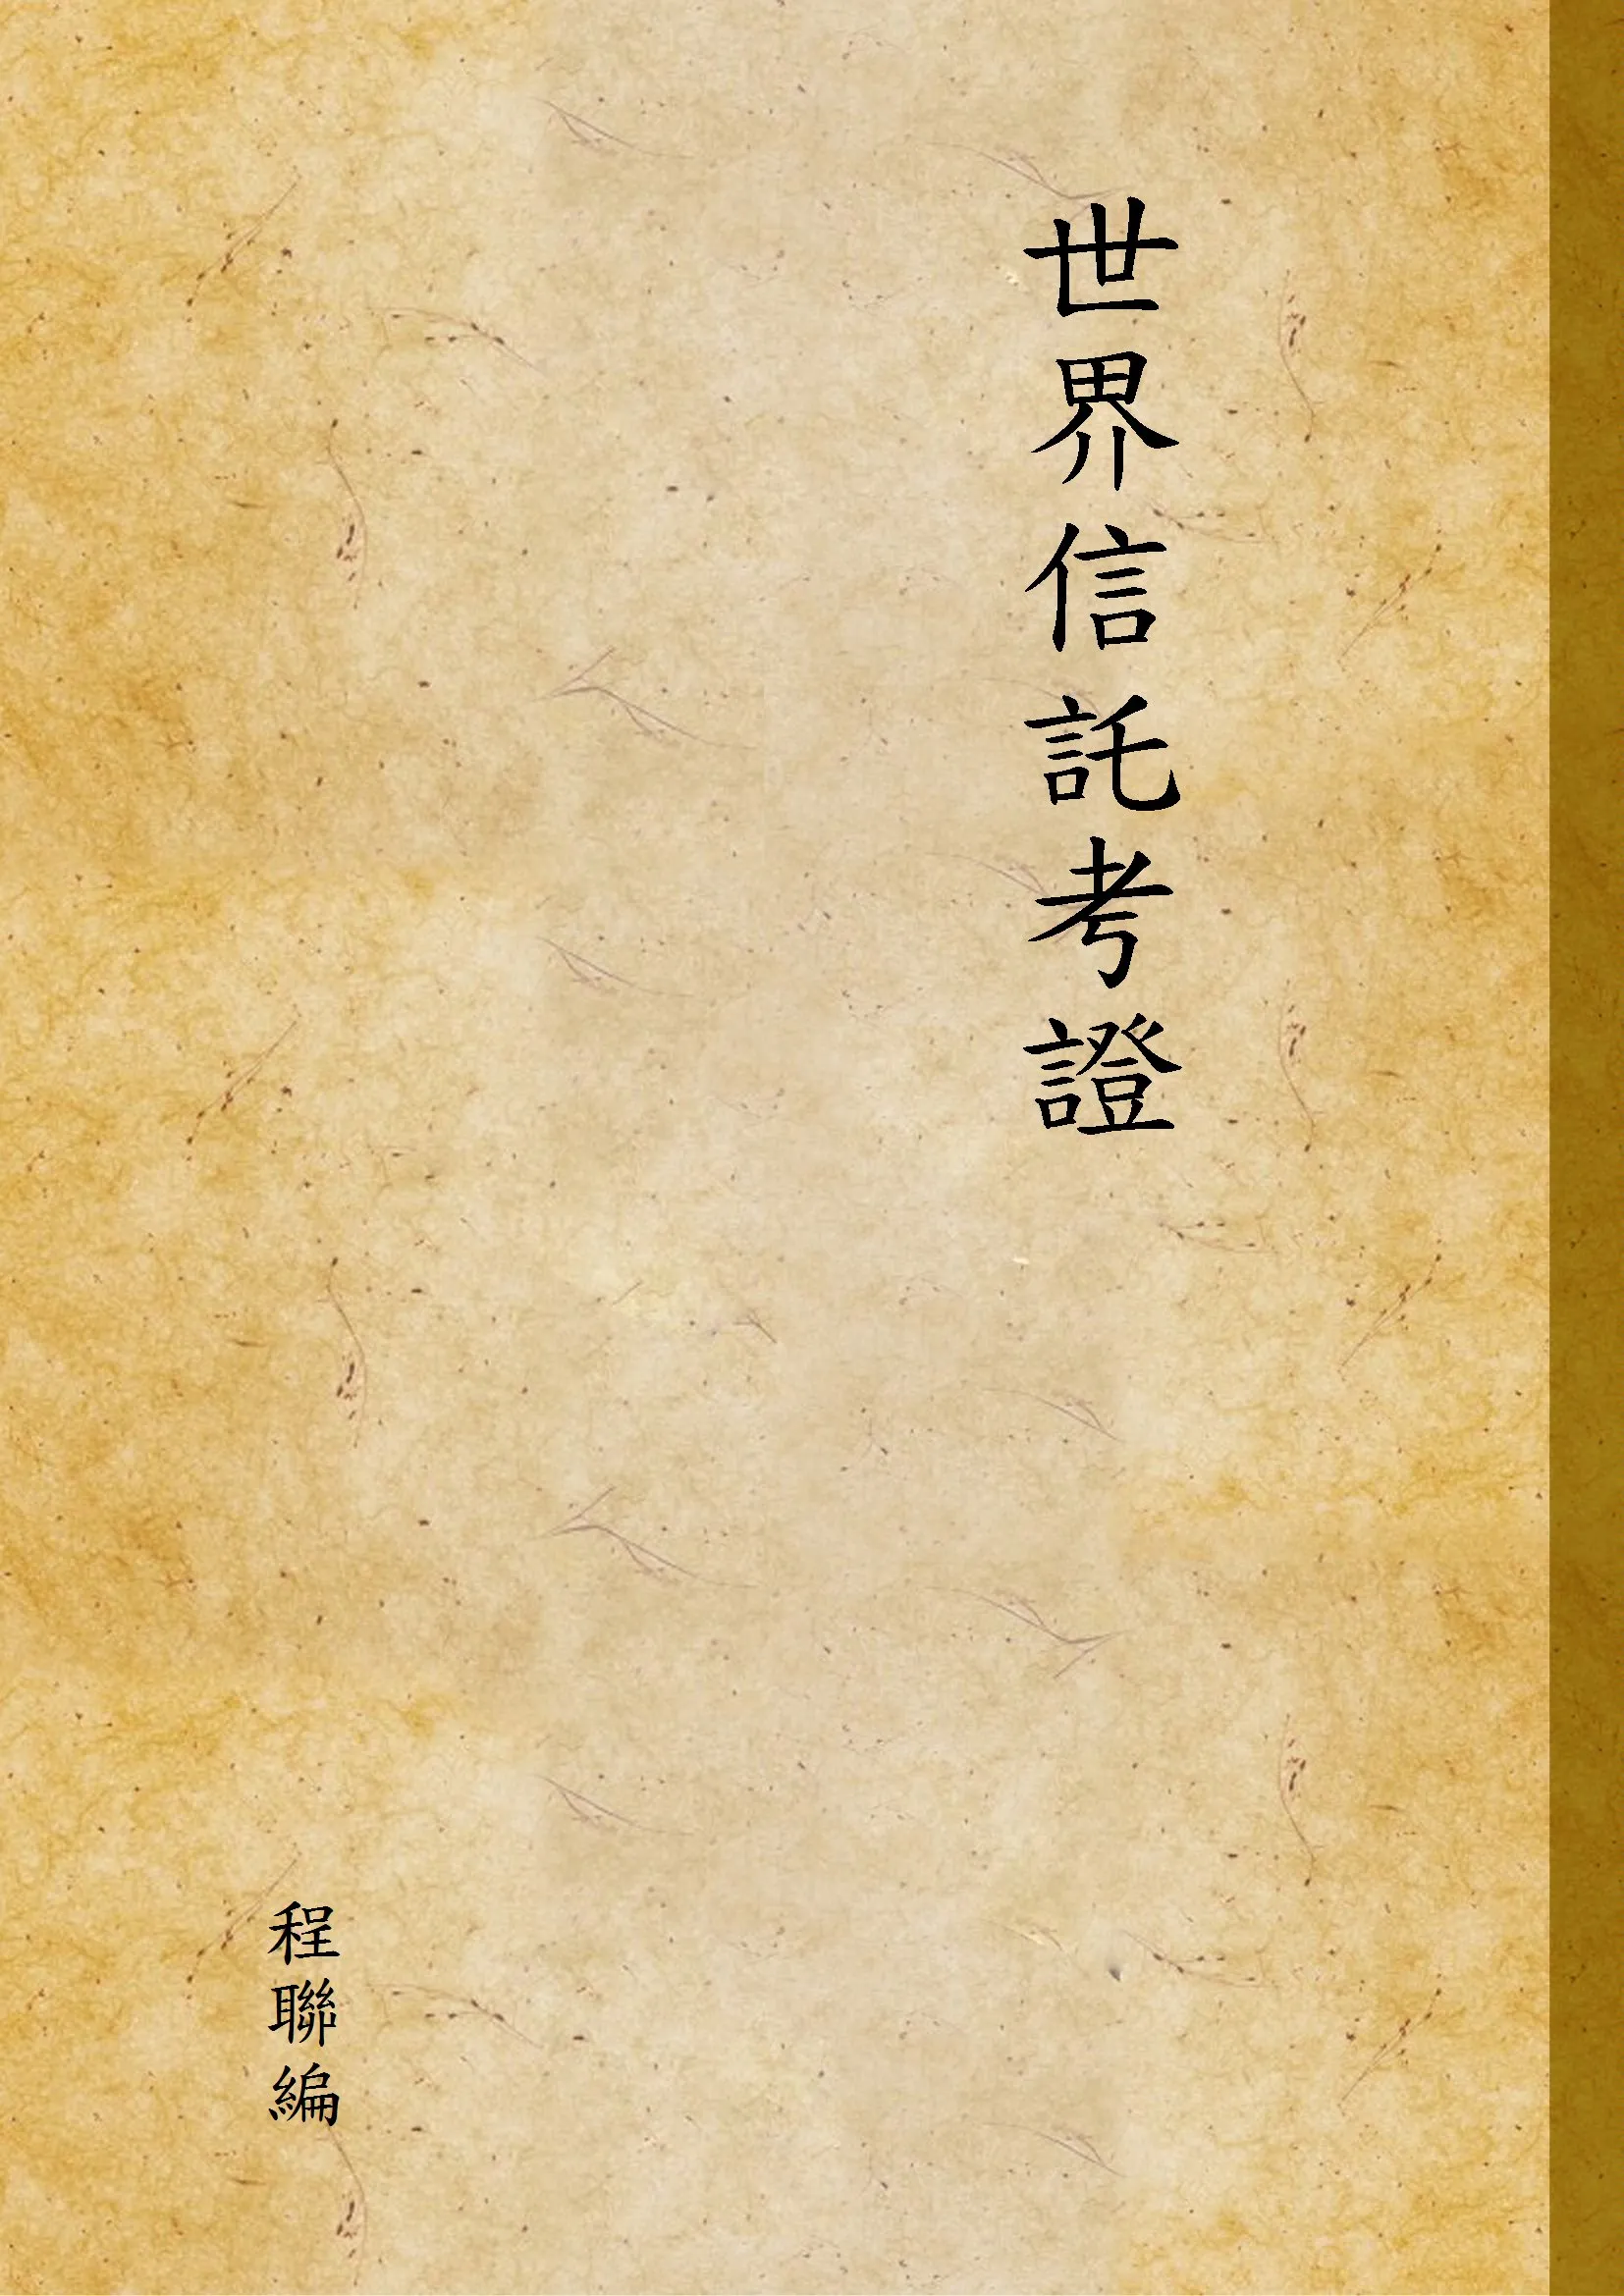 世界信託考證
程聯編